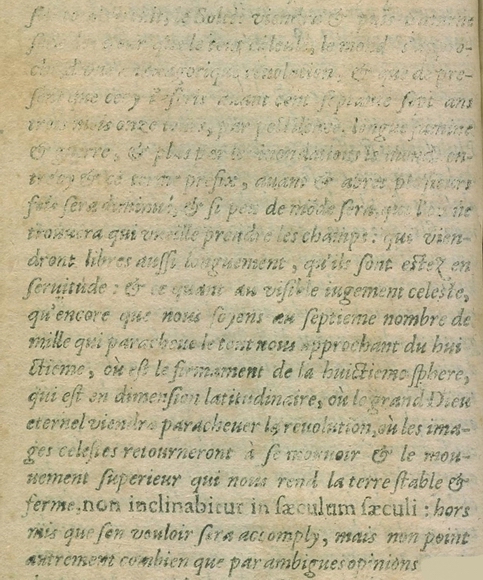 le Soleil viendra & puis Saturne
sera de retour que le tout calculé, le monde s'appro-
che d'une revolution, & que de pre-
sent que cecy avant cent septante sept ans
trois mois onze iours, par pestilence, longue famine
& guerre, & plus par les inondations le monde en-
tre cy & ce terme prefix, auant & apres plusieurs
fois sera diminué, & si peu de mõde sera, que l'on ne
trouuera qui vueille prendre les champs: qui vien-
dront libres aussi longuement, qu'ils sont estez en
seruitude: & ce quant au visible iugement celeste,
qu'encore que nous soyons au septieme nombre de
mille qui paracheue le tout nous approchant du hui
ctieme, où est le firmament de la huictieme sphere,
qui est en dimension latitudinaire, où le grand Dieu
eternel viendra paracheuer la reuolution, où les ima-
ges celestes retourneront à se mouuoir & le mou-
uement superieur qui nous rend la terre stable &
ferme, non inclinabitur in sæculum sæculi: hors
mis que son vouloir sera accomply, mais non point
autrement combien que par ambigues opinions